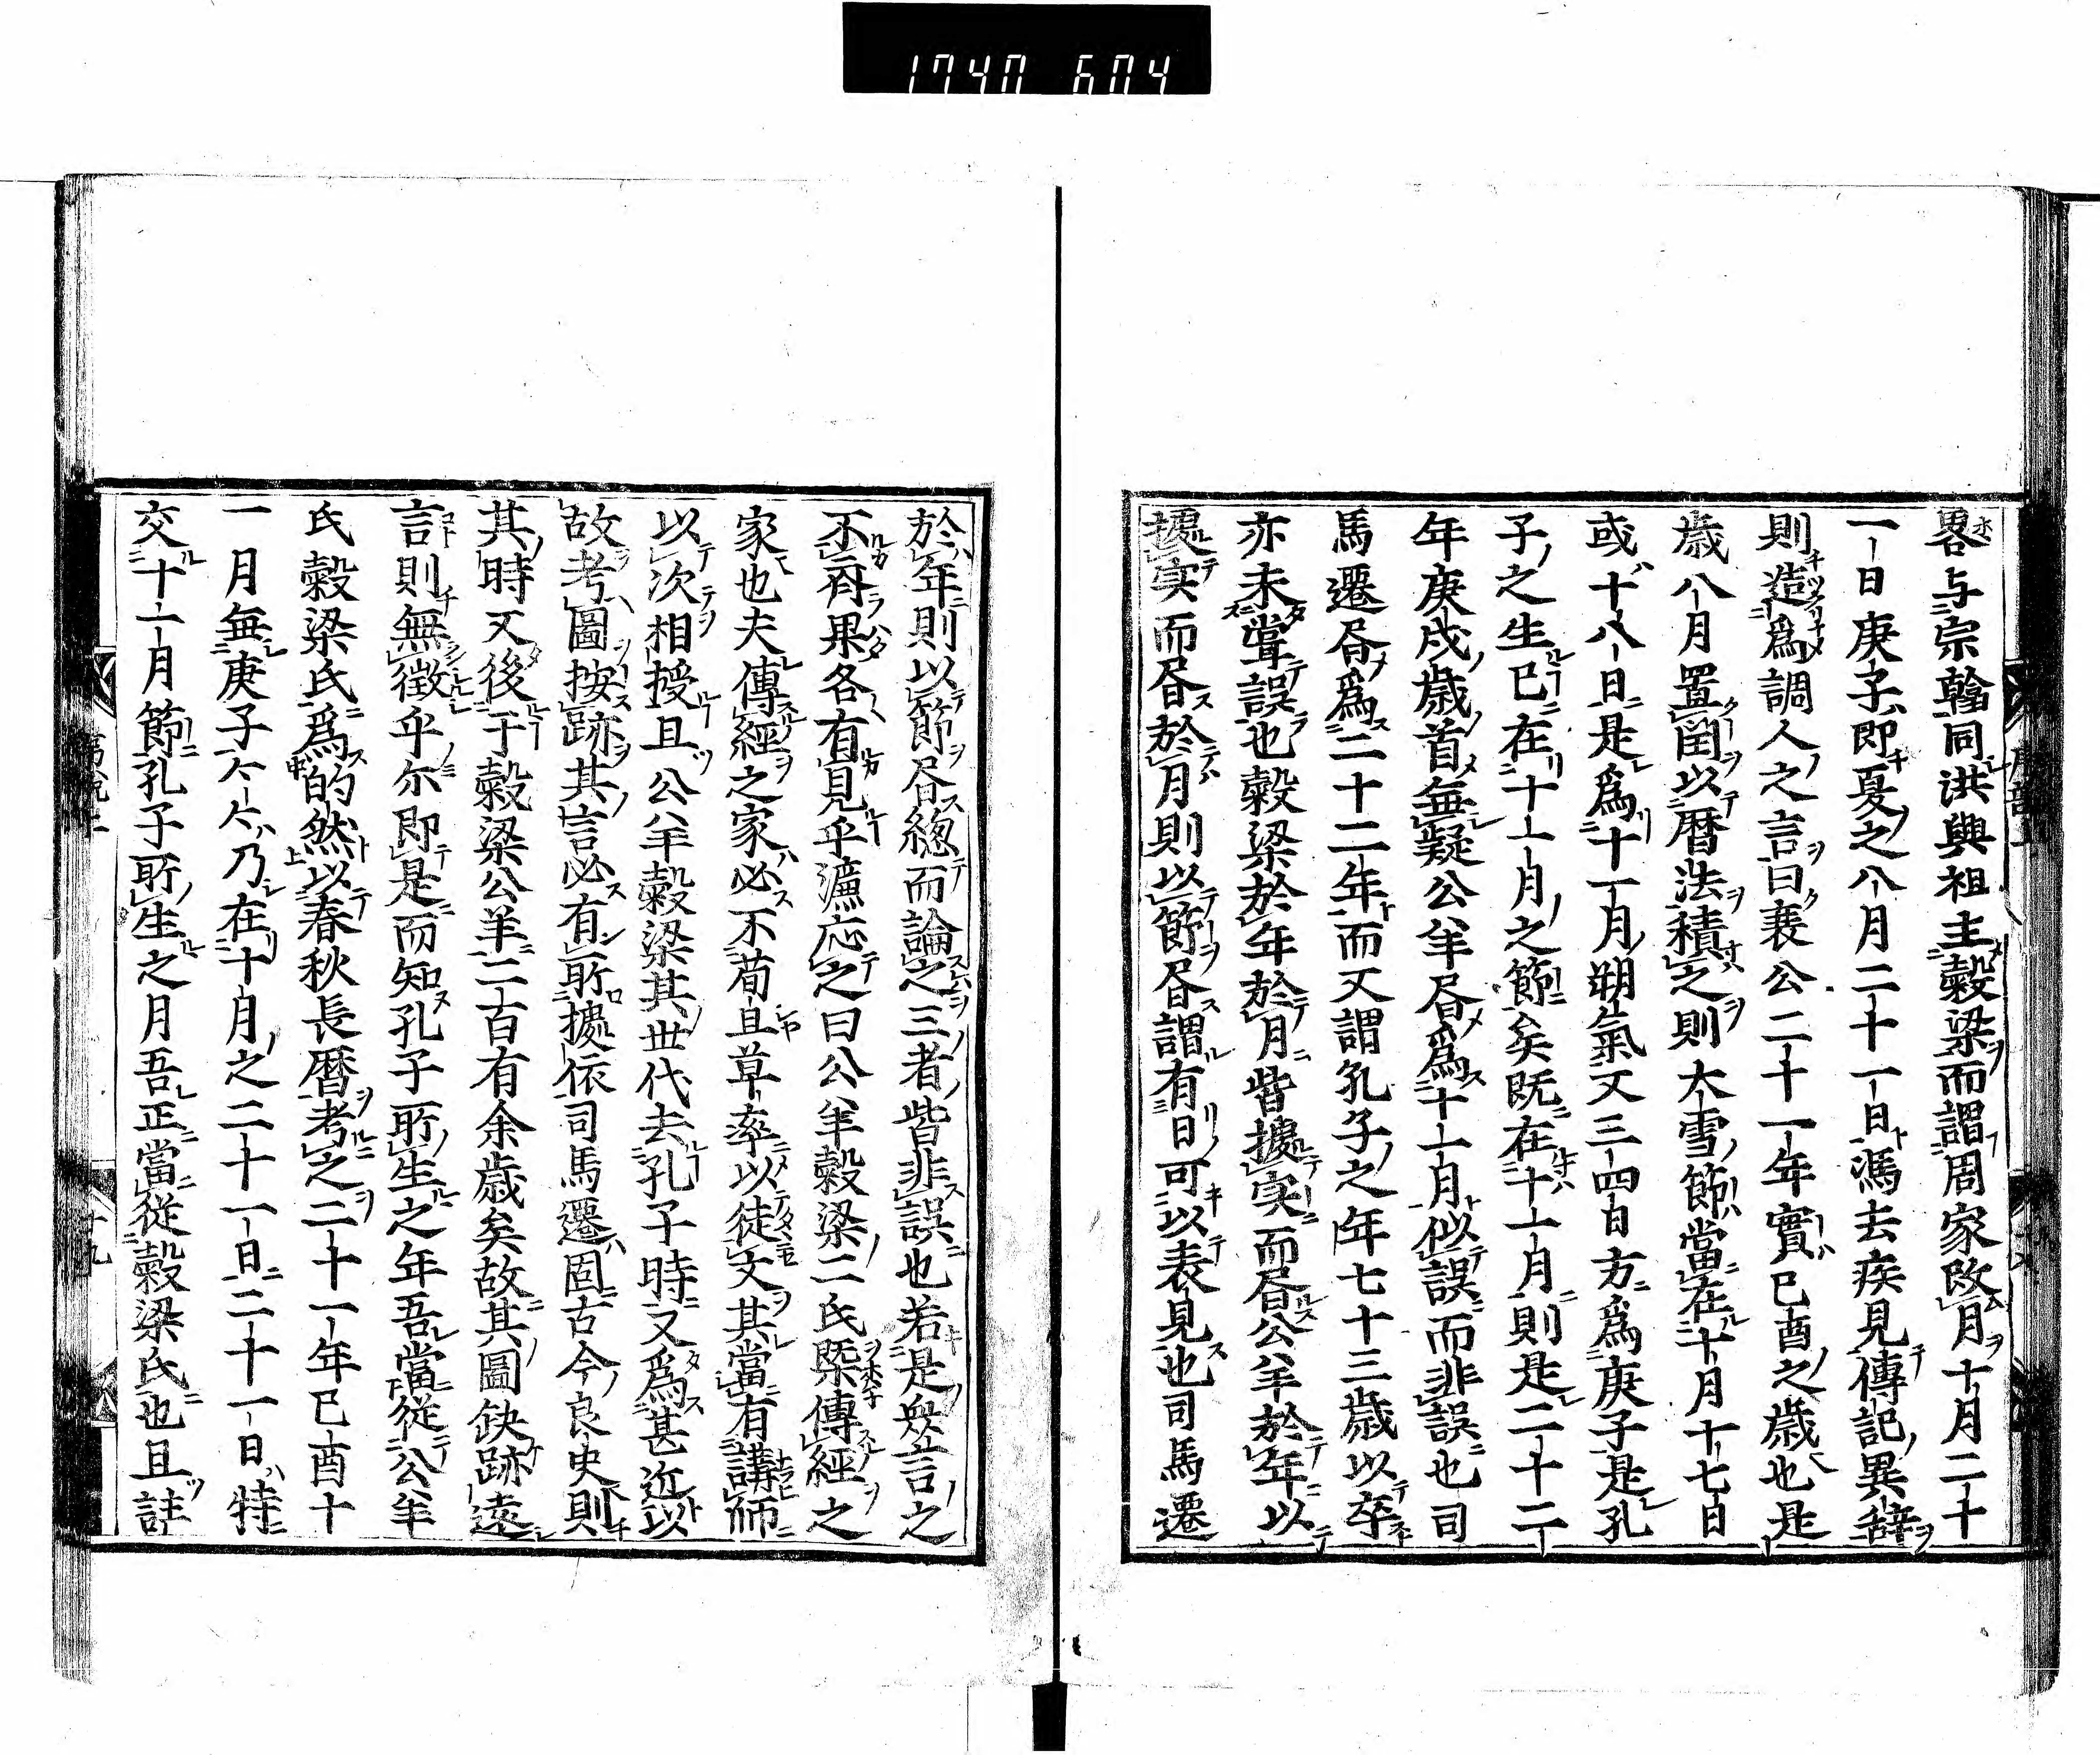 1740 604
畧与宗翰同洪興祖主穀梁而謂周家改月十月二十
一日庚子即夏之八月二十一日馮去疾見傳記異辞
則造爲調人之言曰襄公二十一年實已酉之歳也是
歳八月置閏以暦法積之則大雪節當在十月十七日
或十八日是爲十一月朔氣又三四日方爲庚子是孔
子之生已在十一月之節矣既在十一月則是二十二
年庚戌歳首無疑公羊昬爲十一月似誤而非誤也司
馬遷昬爲二十二年而又謂孔子之年七十三歳以卒
亦未甞誤也穀梁於年於月皆據実而昬公羊於年以
據実而昬於月則以節昬謂有日可以表見也司馬遷
於年則以節昬總而論之三者皆非誤也若是哭言之
不有果各有見乎濂応之曰公羊穀梁二氏既傳經之
家也夫傳經之家必不苟且草率以徒文其當有講師
以次相授且公羊穀梁其世代去孔子時又爲甚近以
故考圖按跡其言必有所據依司馬遷固古今良史則
其時又後于穀梁公羊二百有余歳矣故其圖缺跡遠
言則無徴乎尔即是而知孔子所生之年吾當從公羊
氏穀梁氏爲的然以春秋長暦考之二十一年已酉十
一月無庚子公公乃在十月之二十一日二十一日特
交十一月節孔子所生之月吾正當從穀梁氏也且註
十九